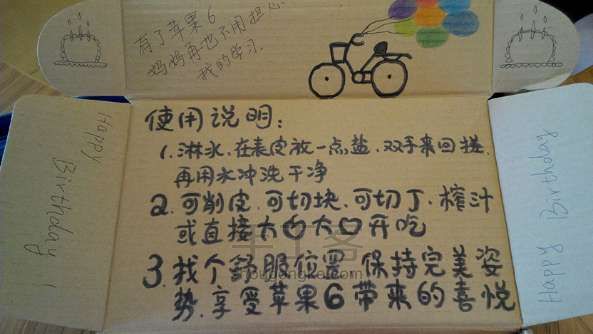 有了苹果6
妈妈再也不用担心
我的学习.
Happy
Birthday!
使用说明:
1.淋水.在表皮放一点盐.双手来回搓.
再用水冲洗干净
2.可削皮.可切块.可切丁.榨汁
或直接大口大口开吃
3.找个舒服位置 保持完美姿
势.享受苹果6带来的喜悦
Happy Birthday